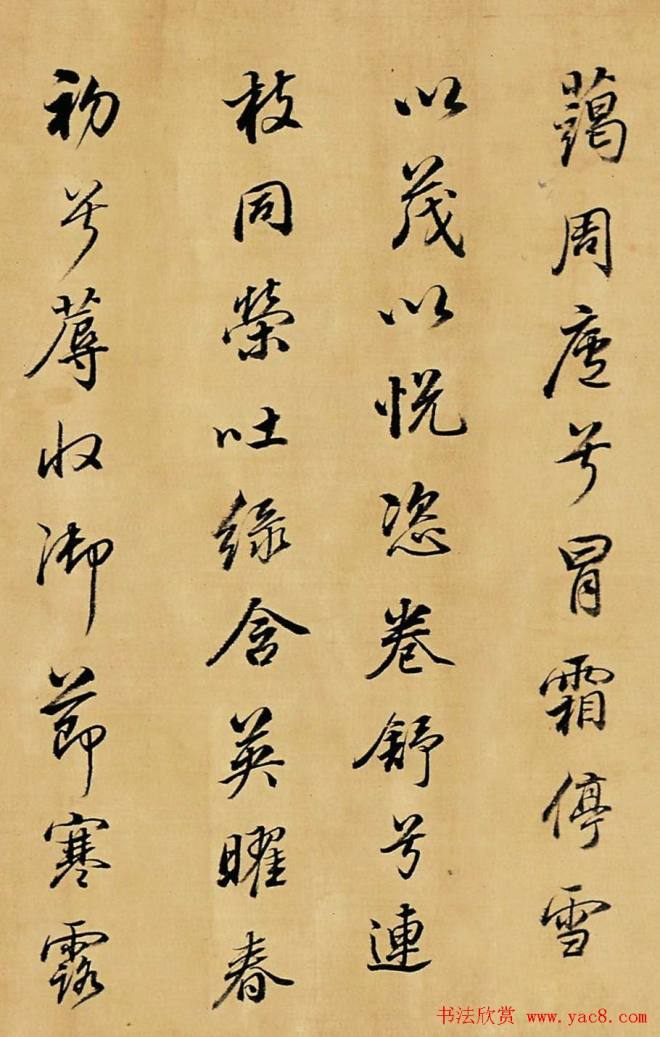 藹周廬兮冒霜停雪
以茂以悅恣卷舒兮連
枝同榮吐綠含英曜春
初兮蓐收御節寒露
书法欣赏 www.yac8.com